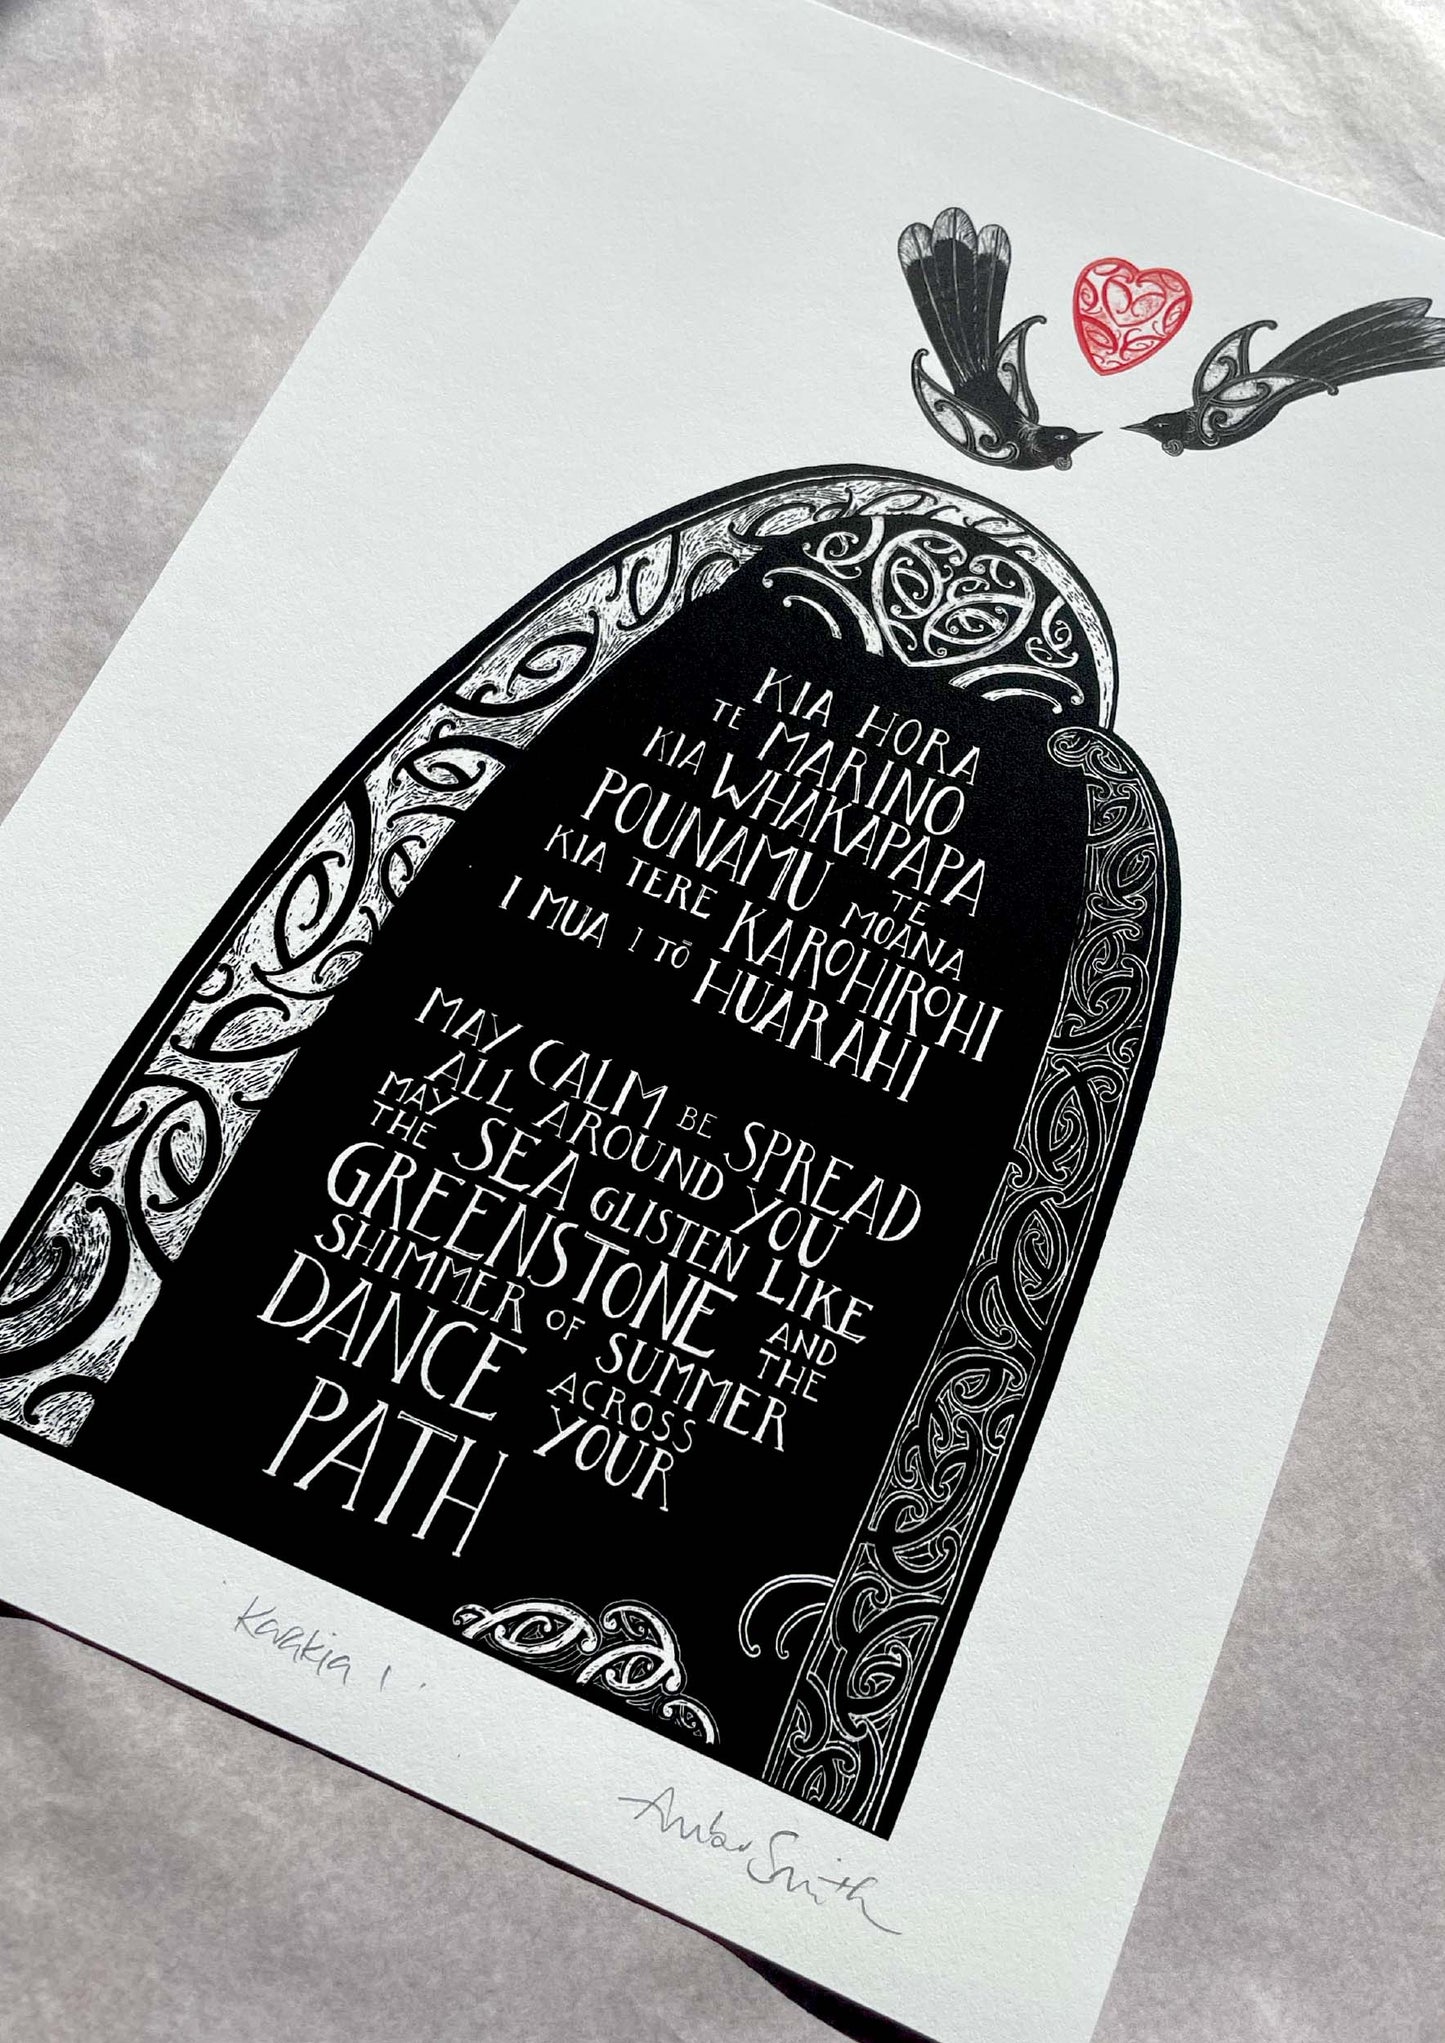 KIA HORA
TE MARINO
KIA WHAKAPAPA
POUNAMU TE MOANA
KIA TERE KAROHIROHI
I MUA I TŌ HUARAHI
MAY CALM BE SPREAD
ALL AROUND YOU
MAY THE SEA GLISTEN LIKE
GREENSTONE AND THE
SHIMMER OF SUMMER
DANCE ACROSS YOUR
PATH
Karakia 1.
Amber Smith